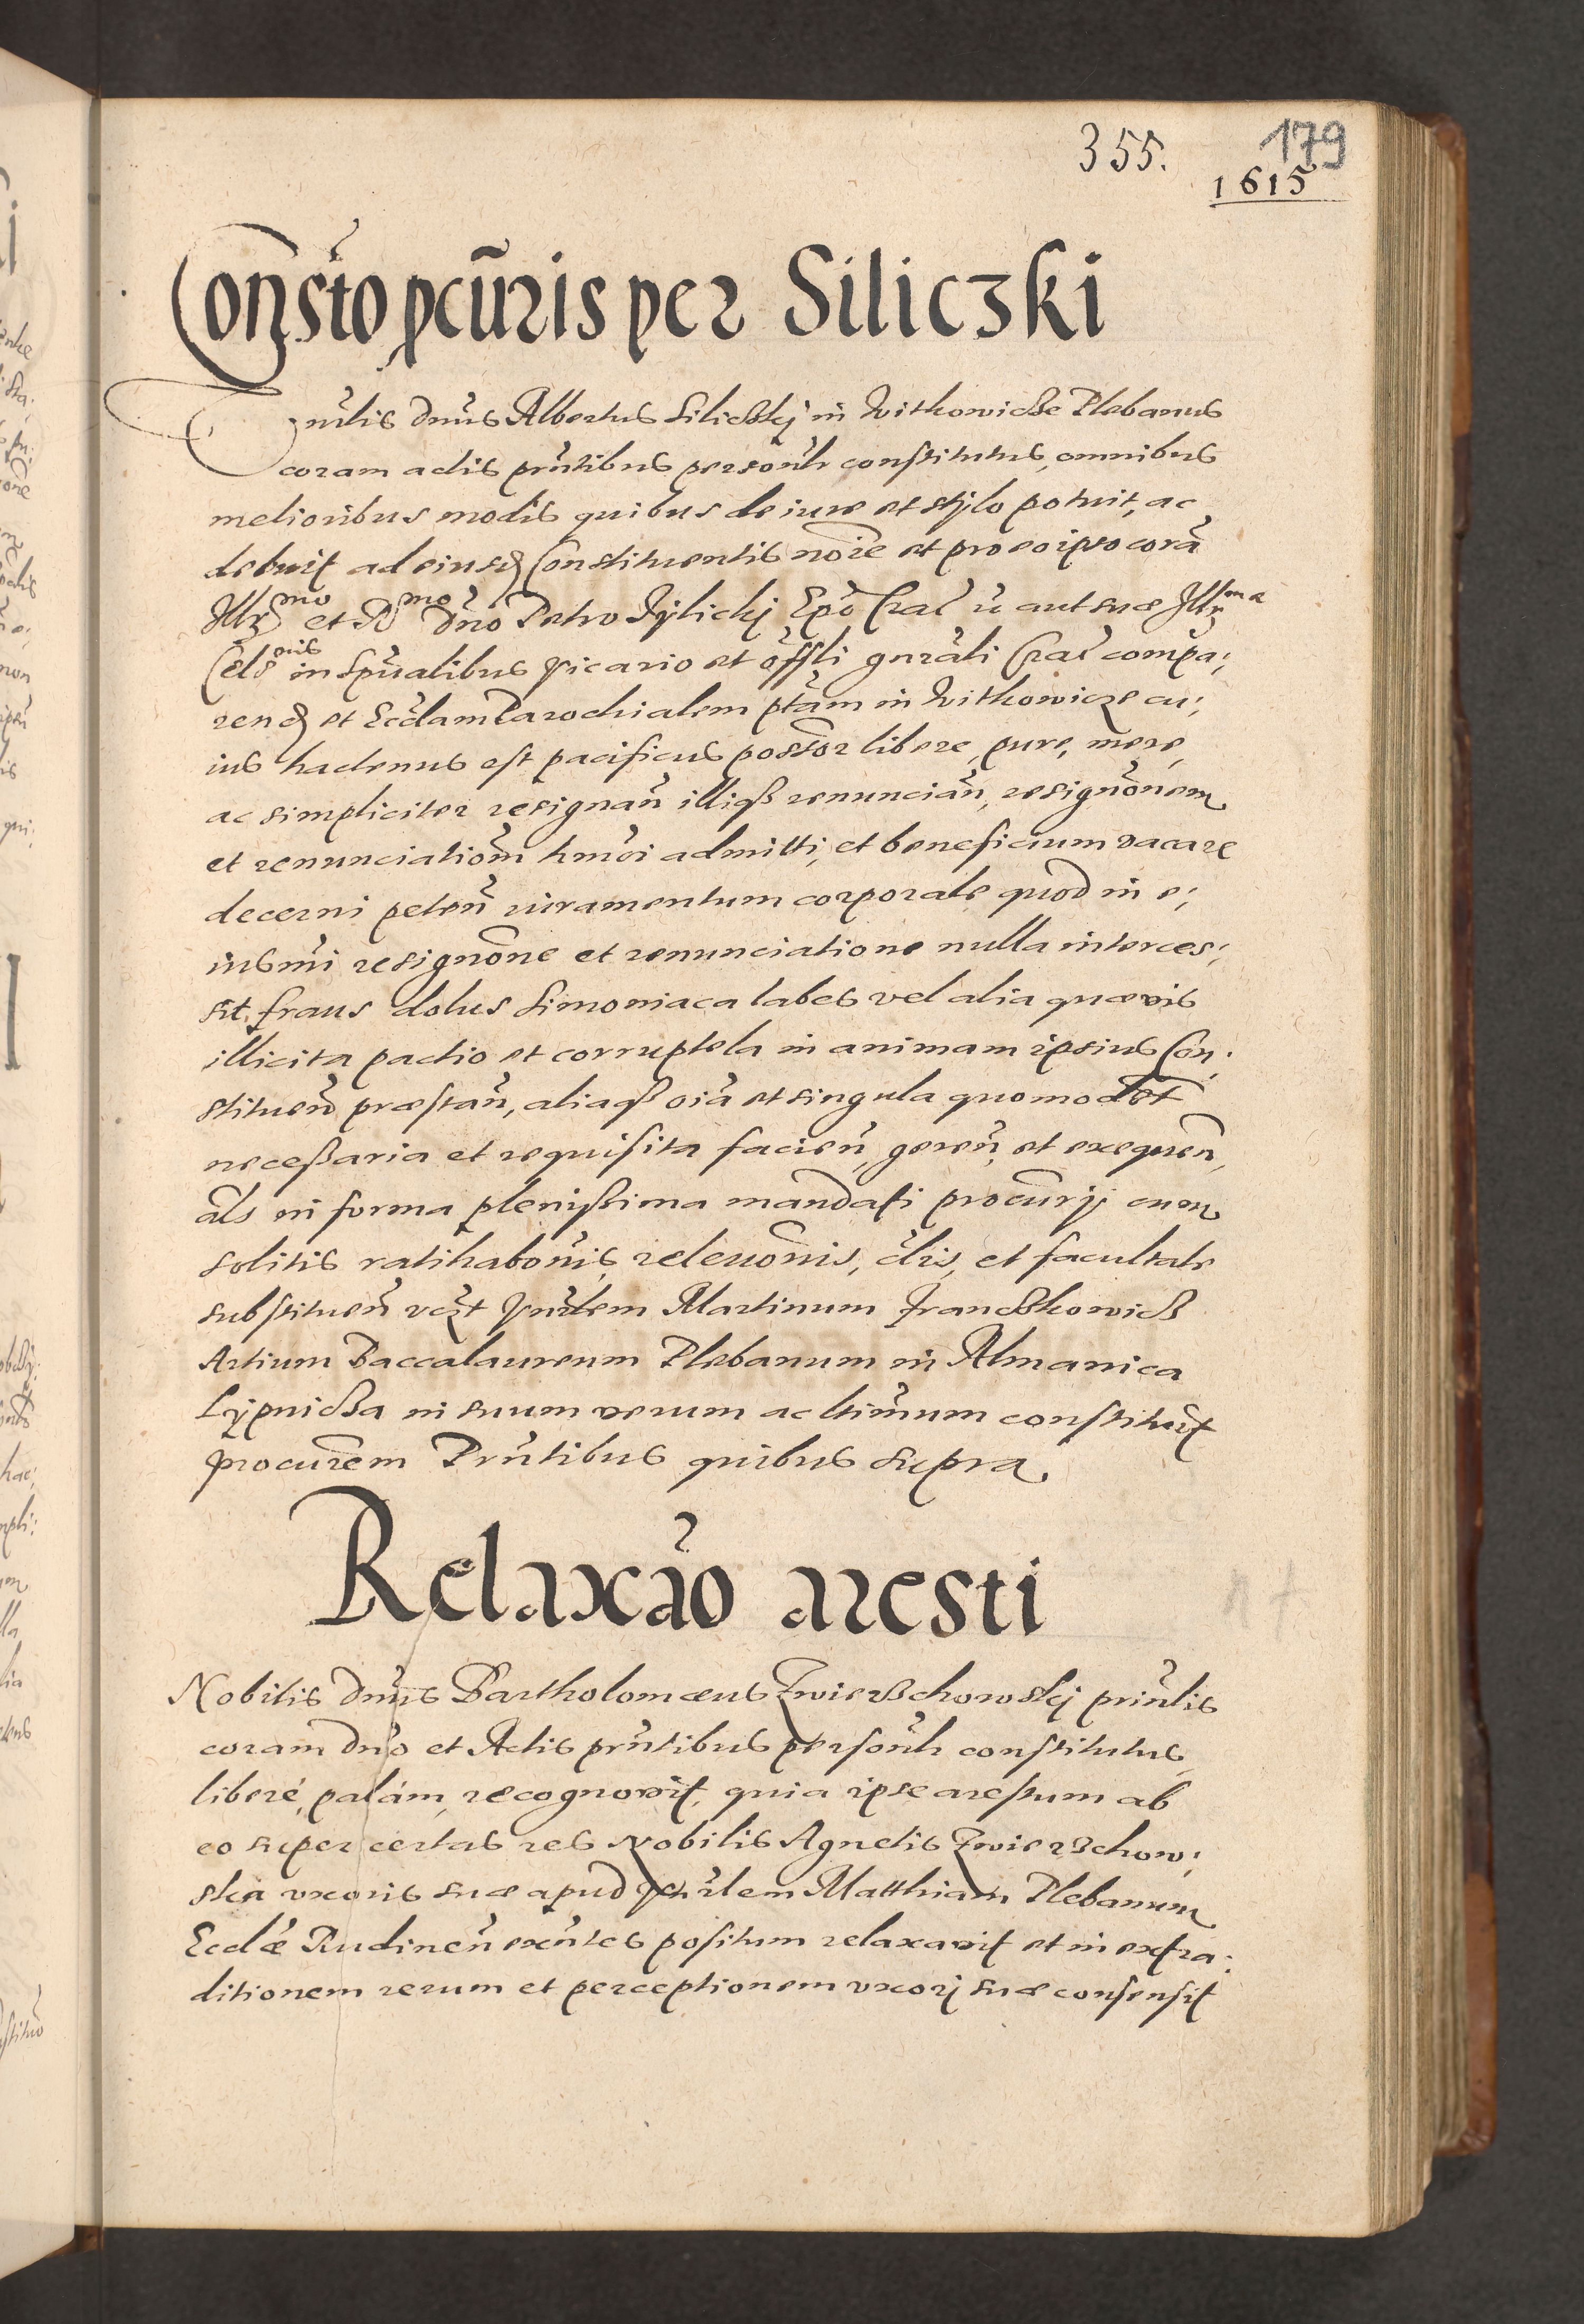 355. 179
1615
Consto pcuris per Siliczki
Vnlis dnus Albertus Siliczkÿ in Witkowicze Plebanus
coram actis pntibus personlr constitutus, omnibus
melioribus modis quibus de iure et stÿlo potuit, ac
debuit ad eiusd Constituentis noie et pro eo ipso corā
Illrmo et Rmo dno Petro Tÿlickÿ Epo Crac u aut suæ Illrma
Cels onis in spualibus vicario et offli gnrali Crac compa;
rend et Eccl̃am Parochialem ptam in Witkowicze cu;
ius hactenus est pacificus possor libere, pure, mere,
ac simpliciter resignan̄ illiqß renuncian̄, resignonem
et renunciatiom hmoi admitti, et beneficium vacare
decerni peten̄ iuramentum corporale quod in e;
iusmi resignone et renunciatione nulla interces;
sit, fraus dolus Simoniaca labes vel alia quævis
illicita pactio et corruptela in animam ipsius Con;
stituen̄ præstan̄, aliaqß oia et singula quomodolt
necessaria et requisita facien̄, geren̄ et exequen̄,
als in forma plenissima mandati procurÿ cum
solitis ratihabonis, relevonis, clis, et facultate
substituen̄ vczt Vnrlem Martinum Franczkowicz
Artium Baccalaureum Plebanum in Almanica
Lÿpnicza in suum verum ac ltimum constituit
procurem Pntibus quibus supra.
Relaxao aresti
Nobilis dnus Bartholomæus Zwierzchowskÿ prinlis
coram dno et Actis pntibus personlr constitutus,
liberé, palám, recognovit, quia ipse arestum ab
eo super certas res Nobilis Agnetis Zwierzchow;
ska uxoris suæ apud Vnrlem Matthiam Plebanum
Ecclæ Rudinen̄ exntes positum relaxavit et in extra;
ditionem rerum et perceptionem uxorÿ suæ consensit